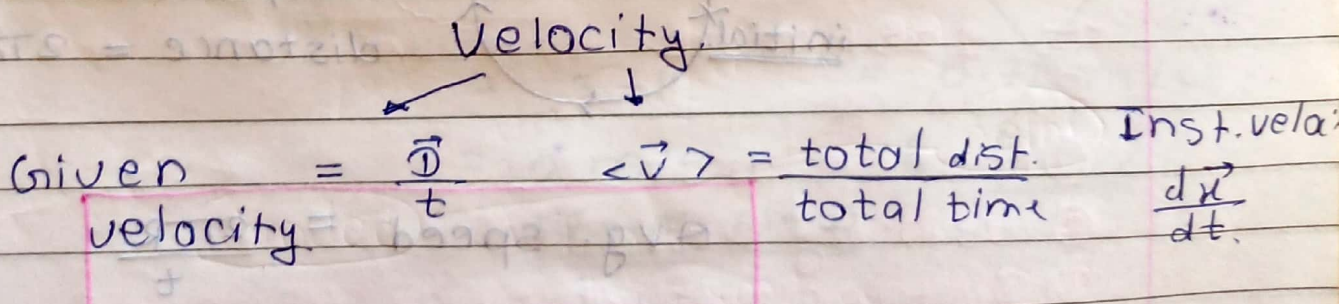 Velocity
Given velocity = D⃗/t
<v⃗> = total dist./total time
Inst. velo:
dx⃗/dt.